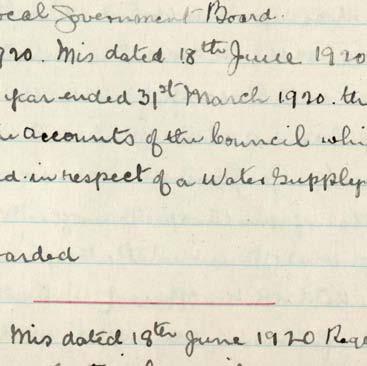 ocal Government Board.
920. Mis dated 18th June 1920
year ended 31st March 1920. th
e accounts of the Council whi
d in respect of a Water Supply
arded
Mis dated 18th June 1920 Reg